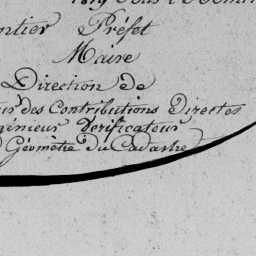 Préfet
Maire
Direction de
des Contributions Directes
Vérificateur
Géomètre du Cadastre